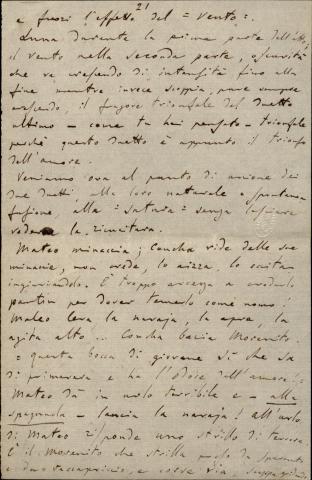 21
e fuori l'effetto del = vento =.
Luna durante la prima parte dell'atto,
il vento nella seconda parte, oscurità
che va crescendo di intensità fino alla
fine mentre invece scoppia, pure sempre
crescendo, il fragore trionfale del duetto
ultimo – come tu hai pensato – trionfale
perchè questo duetto è appunto il trionfo
dell'amore.
Veniamo ora al punto di unione dei
due duetti, alla loro naturale e spontanea
fusione, alla = satura = senza lasciare
vedere la ricucitura.
Mateo minaccia; Concha ride delle sue
minacie, non crede, lo aizza, lo eccita
ingiuriandolo. È troppo avvezza a crederlo
per dover temerlo come uomo!
Mateo leva la navaja, la apre, la
agita alto... Concha bacia Morenito.
= questa bocca di giovane sì che sa
di primavera e ha l'odore dell'amore!
Mateo dà in urlo terribile e – alla
spagnuola – lancia la navaja! all'urlo
di Mateo risponde uno strillo di terrore.
È il morenito che strilla
e corre via,